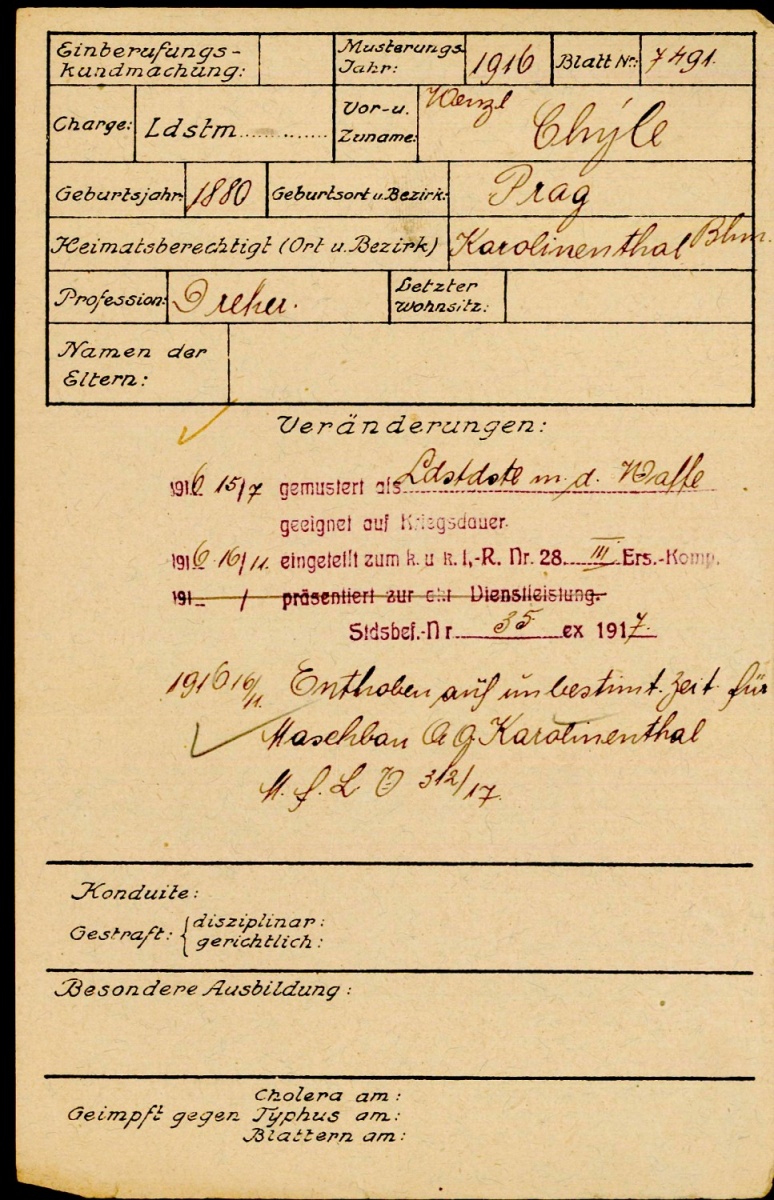 Einberufungs- kundmachung: Musterungs Jahr: 1916 Blatt Nr: 7491.
Charge: Ldstm Vor- u. Zuname: Wenzl Chýle
Geburtsjahr: 1880 Geburtsort u. Bezirk: Prag
Heimatsberechtigt (Ort u. Bezirk) Karolinenthal Bhm.
Profession: Dreher. Letzter Wohnsitz:
Namen der Eltern:
Veränderungen:
1916 15/7 gemustert als Ldstdste m. d. Waffe
geeignet auf Kriegsdauer.
1916 16/11. eingeteilt zum k. u. k. I.-R. Nr. 28. III Ers.-Komp.
191 / präsentiert zur Dienstleistung.
Stdsbef.-Nr 35 ex 1917.
1916 16/11. Enthoben auf unbestimt. Zeit für
Maschbau A G Karolinenthal
M. f. L. V 312/17.
Konduite:
Gestraft: { disziplinar:
gerichtlich:
Besondere Ausbildung:
Cholera am:
Geimpft gegen Typhus am:
Blattern am: